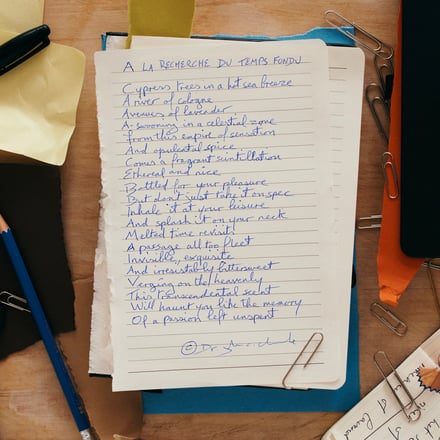 A LA RECHERCHE DU TEMPS FONDU
Cypress trees in a hot sea breeze
A river of cologne
Avenues of lavender
A-swooning in a celestial zone
From this empire of sensation
And opulential spice
Comes a fragrant scintillation
Ethereal and nice
Bottled for your pleasure
But don't just take it on spec
Inhale it at your leisure
And splash it on your neck
Melted time revisits
A passage all too fleet
Invisible, exquisite
And irresistibly bittersweet
Verging on the heavenly
This transcendental scent
Will haunt you like the memory
Of a passion left unspent
© Dr